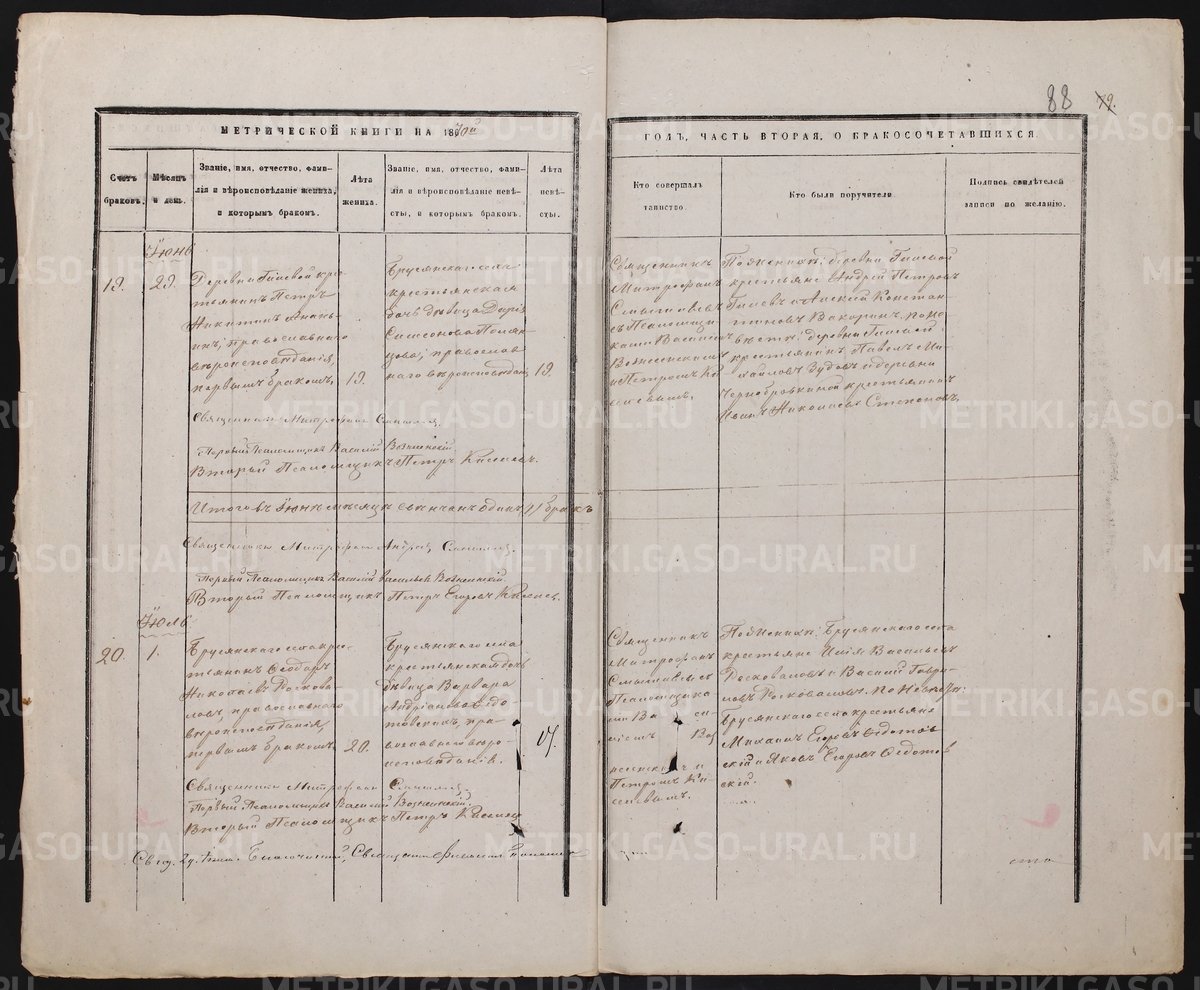 88 79.
МЕТРИЧЕСКОЙ КНИГИ НА 1870й
ГОДЪ, ЧАСТЬ ВТОРАЯ, О БРАКОСОЧЕТАВШИХСЯ
Счетъ браковъ.
Мѣсяцъ и день.
Званіе, имя, отчество, фами-
лія и вѣроисповѣданіе жениха,
и которымъ бракомъ.
Лѣта жениха.
Званіе, имя, отчество, фами-
лія и вѣроисповѣданіе невѣ-
сты, и которымъ бракомъ.
Лѣта невѣ-
сты.
Кто совершалъ
таинство.
Кто были поручители
Подпись свидѣтелей
записи по желанію.
Іюнь
19.
29.
Деревни Гилевой кре-
стьянинъ Петръ
Никитинъ
православнаго
вѣроисповѣданія,
первымъ бракомъ,
19.
Брусянскаго села
крестьянская
дочь дѣвица Дарія
Самсонова
православ
наго вѣроисповѣдан.
19.
Священникъ
Митрофанъ
Смышляевъ
съ Псаломщи
ками Василіемъ
Вознесенскимъ
и Петромъ Ки
селевымъ.
По женихѣ: деревни Гилевой
крестьяне Андрей Петровъ
Гилевъ и Констан
тиновъ Вахоринъ, по не-
вѣстѣ: деревни Гилевой
крестьянинъ Павелъ Ми
хайловъ Зудовъ и деревни
Чернобровкиной крестьянинъ
Иванъ Николаевъ Степановъ.
Священникъ Митрофанъ Смышляевъ
Первый Псаломщикъ Василій Вознесенскій
Вторый Псаломщикъ Петръ Киселевъ.
Итого въ Іюнѣ мѣсяцѣ свѣнчанъ одинъ /1/ бракъ
Священникъ Митрофанъ Андреевъ Смышляевъ
Первый Псаломщикъ Василій Васильевъ Вознесенскій
Вторый Псаломщикъ Петръ Егоровъ Киселевъ.
Іюль
20.
1.
Брусянскаго села кре-
стьянинъ Ѳеодоръ
Николаевъ Росково
ловъ, православнаго
вѣроисповѣданія,
первымъ бракомъ
20.
Брусянскаго села
крестьянская дочь
дѣвица Варвара
Андріанова Ѳедо
товскихъ, пра-
вославнаго вѣро-
исповѣданія.
17.
Священникъ
Митрофанъ
Смышляевъ съ
Псаломщика
ми Ва си-
ліемъ Воз
несенскимъ и
Петромъ Ки
селевымъ.
По женихѣ: Брусянскаго села
крестьяне Илія Васильевъ
Росковаловъ и Василій Гаври-
ловъ Росковаловъ. По невѣстѣ:
Брусянскаго села крестьяне
Михаилъ Егоровъ Ѳедотов
скій и Яковъ Егоровъ Ѳедотов
скій.
Священникъ Митрофанъ Смышляевъ
Первый Псаломщикъ Василій Вознесенскій.
Вторый Псаломщикъ Петръ Киселевъ
Благочинный, Священникъ
METRIKI.GASO-URAL.RU